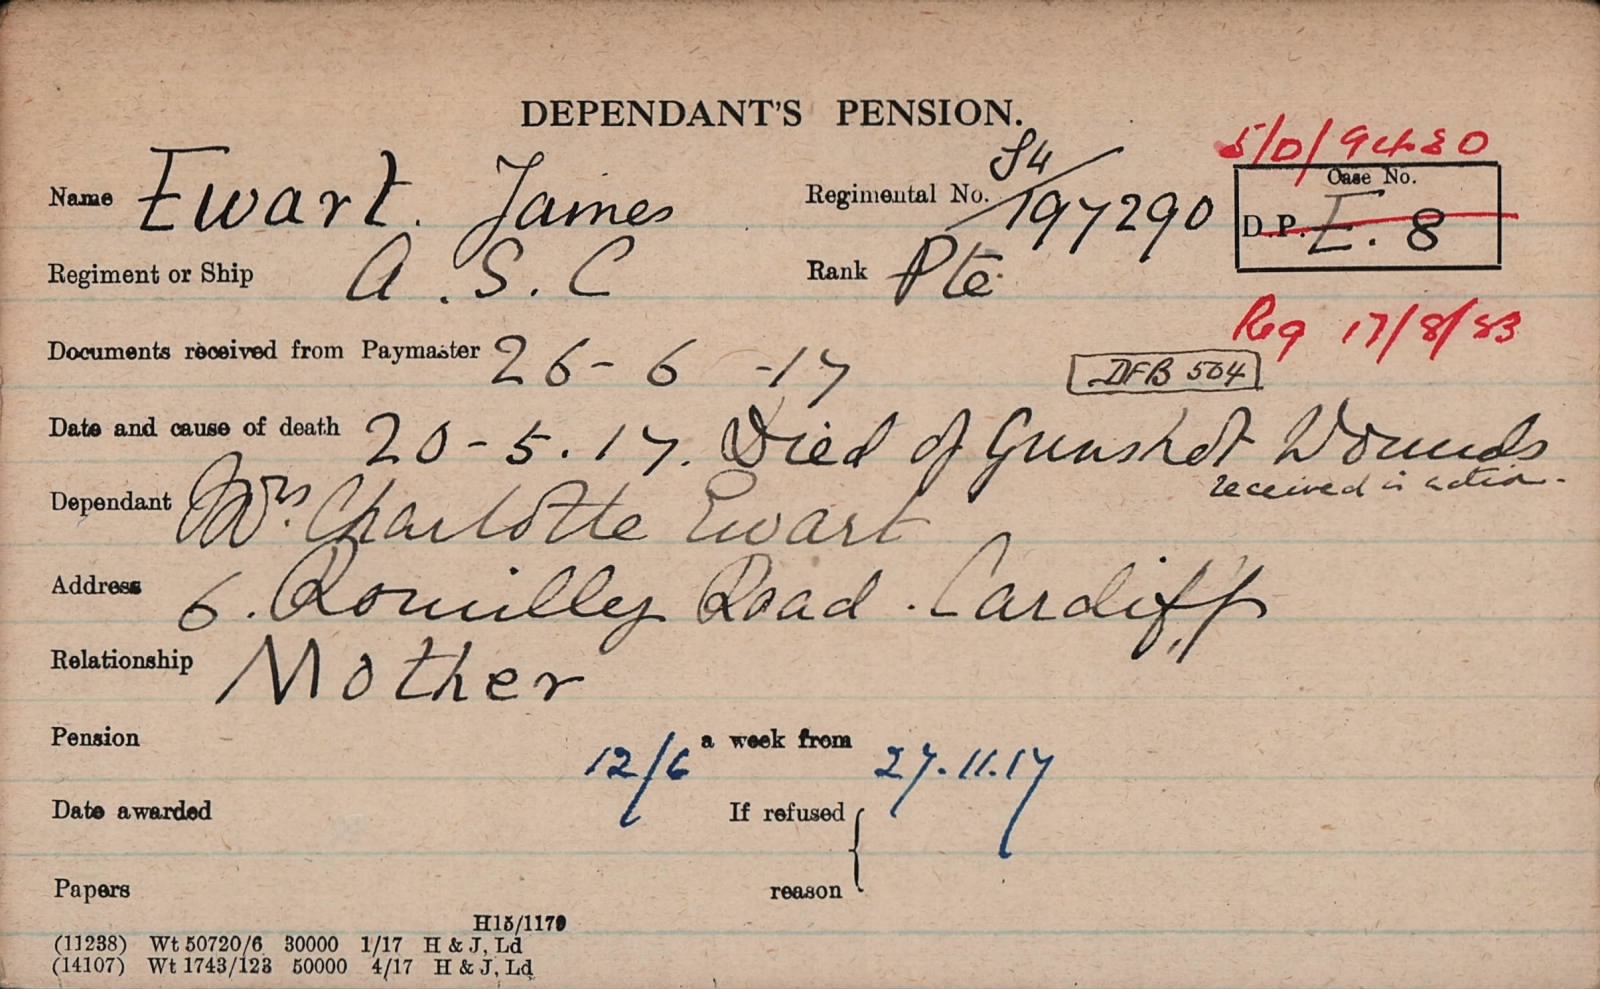 DEPENDANT'S PENSION.
5/D/9430
Name Ewart. James Regimental No. S4/197290
Case No.
D.P. E. 8
Regiment or Ship A.S.C Rank Pte
Reg 17/8/33
Documents received from Paymaster 26-6-17
DFB 504
Date and cause of death 20-5.17. Died of Gunshot Wounds
received in action.
Dependant Mrs. Charlotte Ewart
Address 6. Romilly Road. Cardiff
Relationship Mother
Pension 12/6 a week from 27.11.17
Date awarded If refused
Papers reason
H15/1179
(11238) Wt 50720/6 30000 1/17 H & J, Ld
(14107) Wt 1743/123 50000 4/17 H & J, Ld